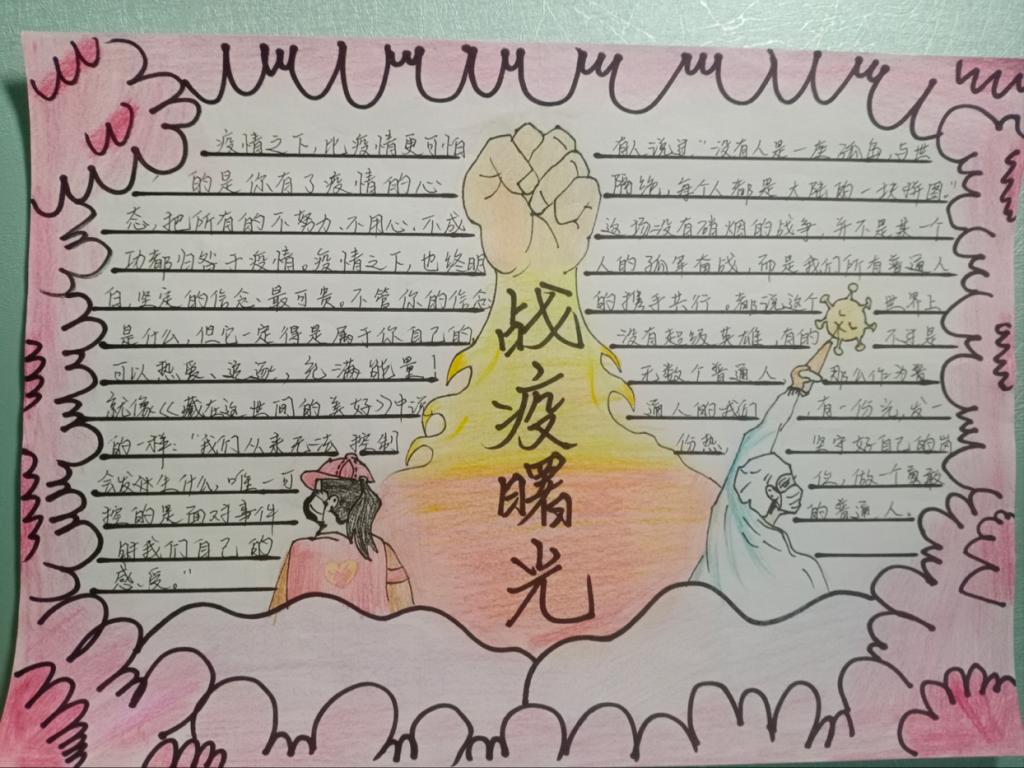 疫情之下,比疫情更可怕
的是你有了疫情的心
态,把所有的不努力、不用心、不成
功都归咎于疫情。疫情之下,也终明
白,坚定的信念、最可贵。不管你的信念
是什么,但它一定得是属于你自己的,
可以热爱、追逐,充满能量!
就像《藏在这世间的美好》中说
的一样:“我们从来无法控制
会发什生什么,唯一可
控的是面对事件
时我们自己的
感受。”
战疫曙光
有人说过:“没有人是一座孤岛,与世
隔绝,每个人都是大陆的一块拼图。”
这场没有硝烟的战争,并不是某一个
人的孤军奋战,而是我们所有普通人
的携手共行。都说这个世界上
没有超级英雄,有的不过是
无数个普通人,那么作为普
通人的我们 有一份光,发一
份热 坚守好自己的岗
位,做个勇敢
的普通人。